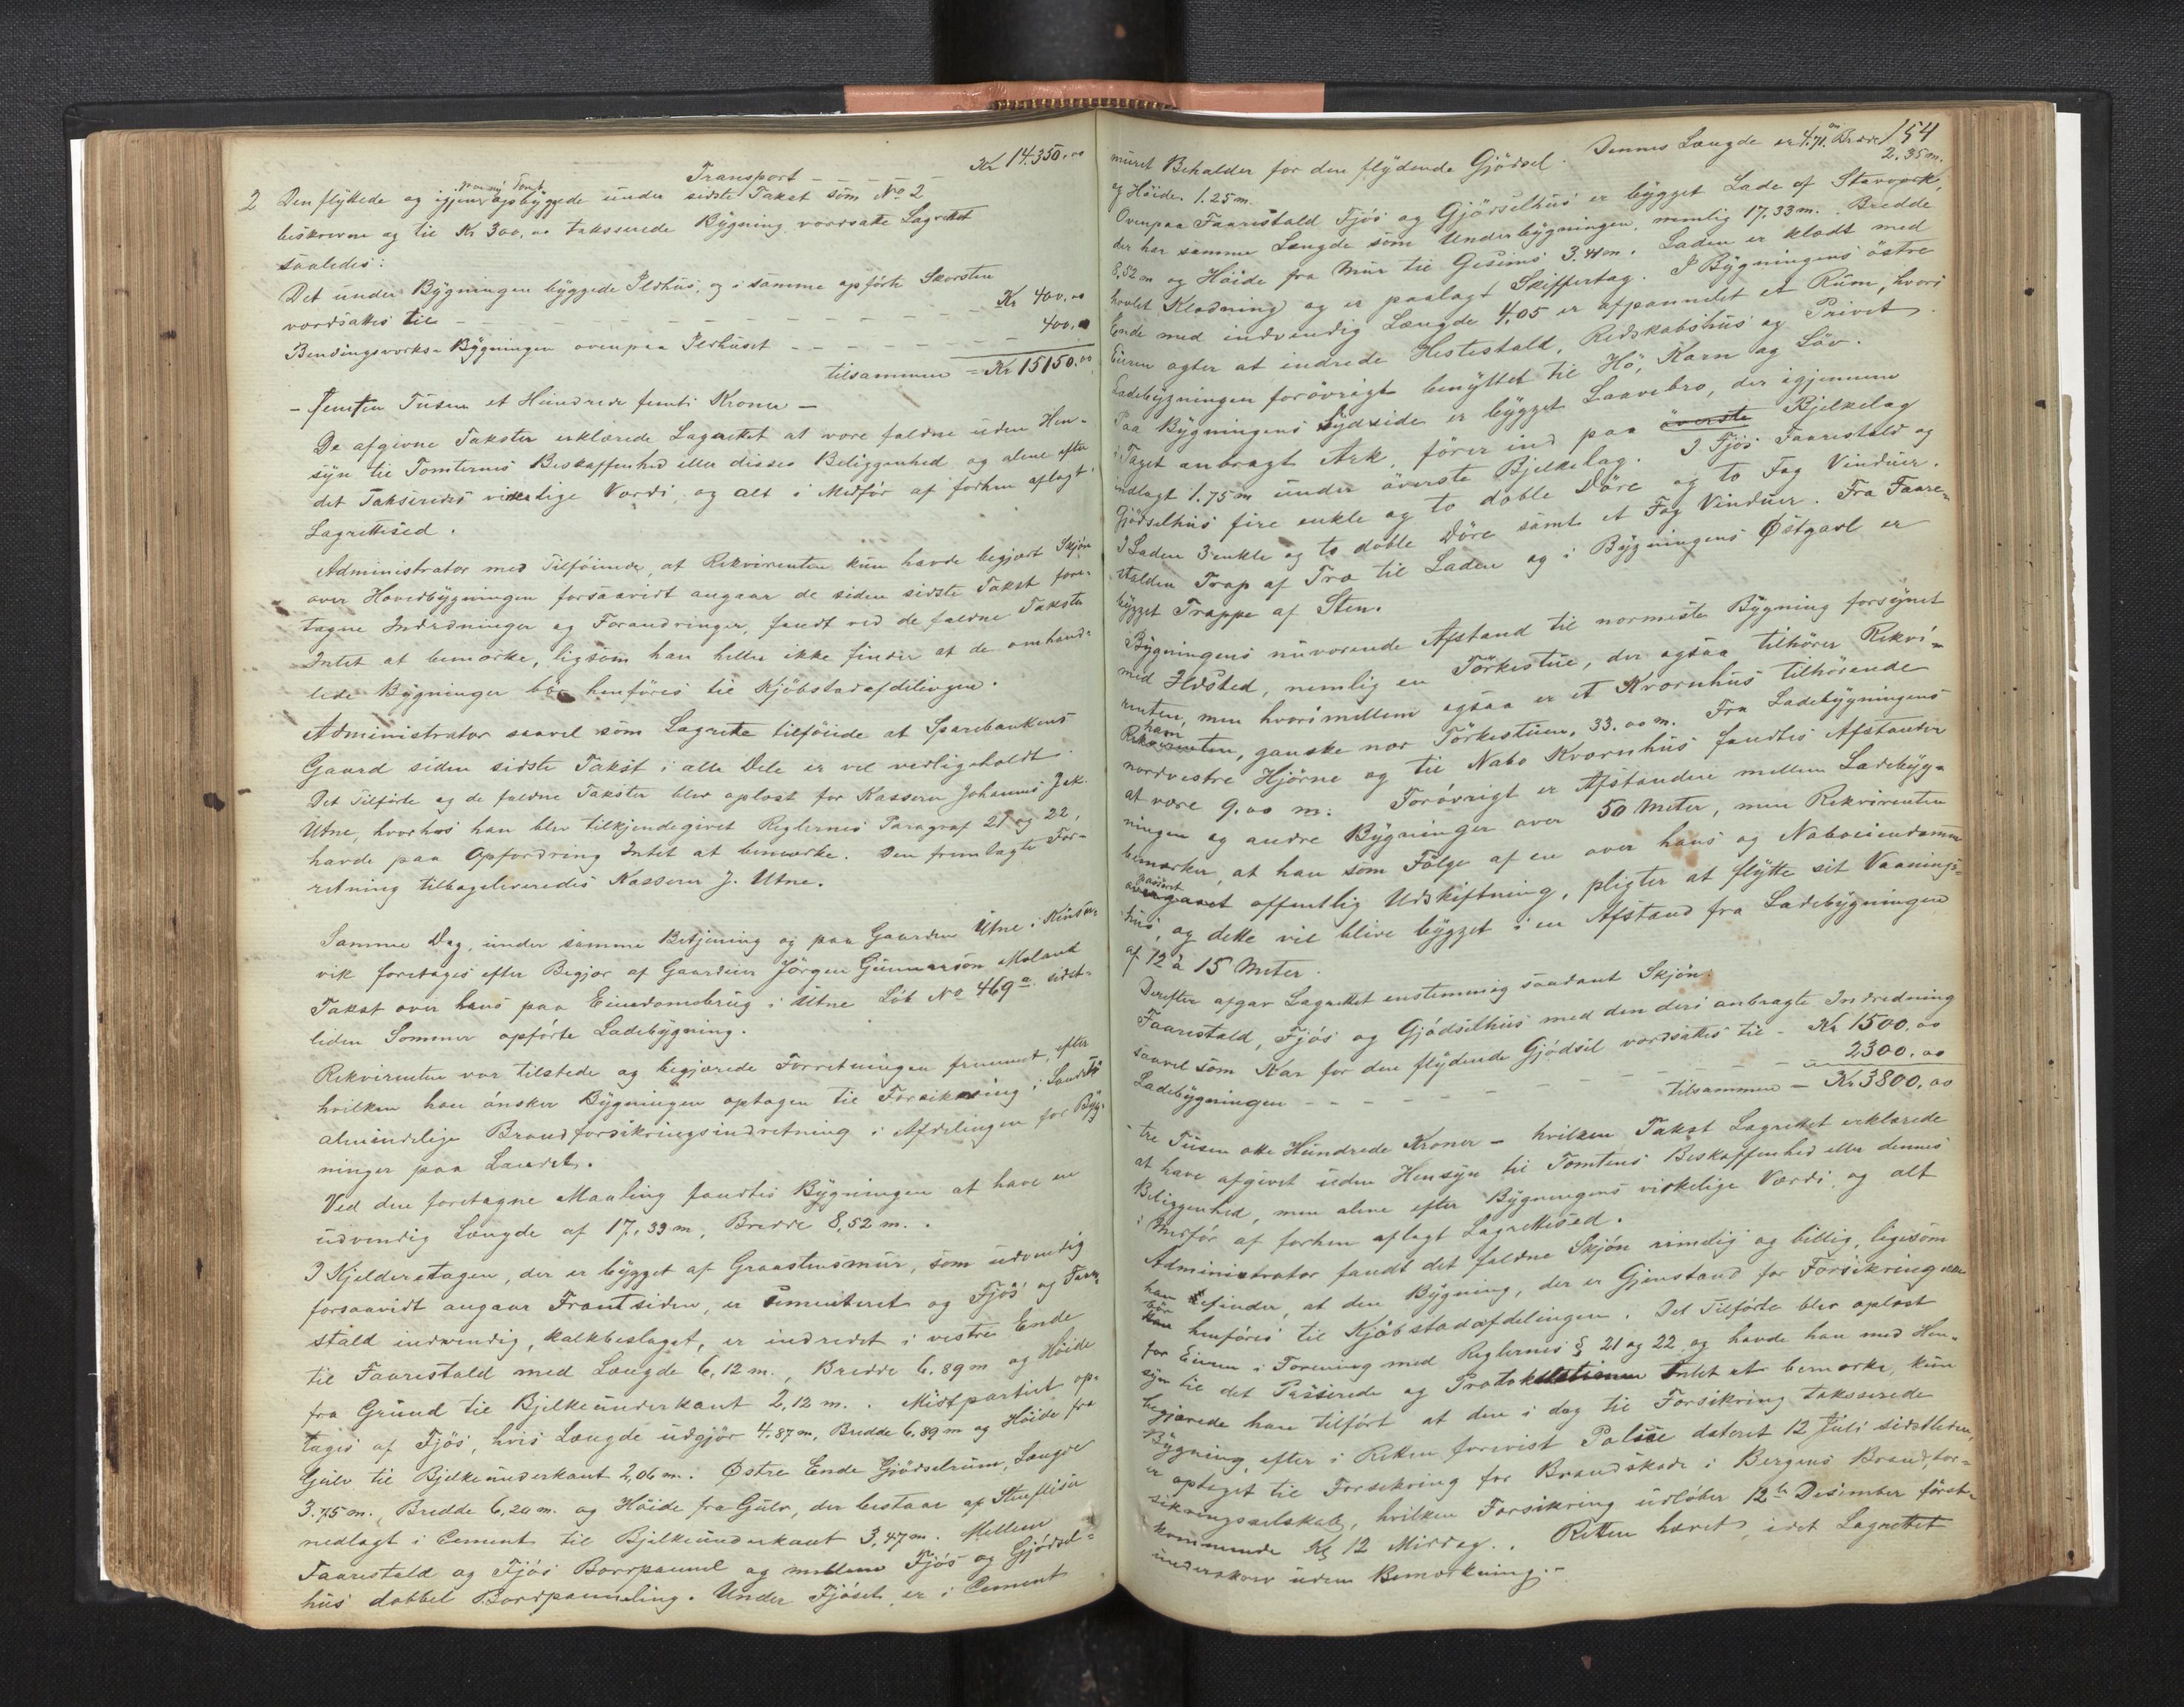 Transport - - - - - Kr 14.350.00
2 Den flyttede og igjen paa ny Tomt opbyggede under sidste Takst som No 2
beskrevne og til Kr 300,00 taksserede Bygning værdsatte Lagrettet
saaledes:
Det under Bygningen byggede Ildhus, og i samme opförte Skorsten
værdsattes til - - - - - - - - - - - Kr 400.00
Bendingsværks-Bygningen ovenpaa Ildhuset - - - - - 400.00
tilsammen = Kr 15150.00
- femten Tusen et Hundrede femti Kroner -
De afgivne Takster erklærede Lagrettet at være faldne uden Hen-
syn til Tomternes Beskaffenhed eller disses Beliggenhed og alene efter
det Takseredes virkelige Værdi, og alt i Medför af forhen aflagt
Lagretteed.
Administrator med Tilföiende, at Rekvirenten kun havde begjært Skjön
over Hovedbygningen forsaavidt angaar de siden sidste Takst fore-
tagne Indredninger og Forandringer, fandt ved de faldne Takster
Intet at bemærke, ligsom han heller ikke finder at de omhand-
lede Bygninger bör henföres til Kjöbstadafdelingen.
Administrator saavel som Lagrette tilföiede at Sparebankens
Gaard siden sidste Takst i alle Dele er vel vedligeholdt
Det Tilförte og de faldne Takster blev oplæst for Kasserer Johannes Jak.
Utne, hvorhos han blev tilkjendegivet Reglernes Paragraf 21 og 22,
havde paa Opfordring Intet at bemærke. Den fremlagte For-
retning tilbageleveredes Kasserer J. Utne.
Samme Dag, under samme Betjening og paa Gaarden Utne i Kinser-
vik foretages efter Begjær af Gaardeier Jörgen Gunnarsön Meland
Takst over hans paa Eiendomsbrug i Utne Löb No 469 a sidst-
leden Sommer opförte Ladebygning.
Rekvirenten var tilstede og begjærede Forretningen fremmet, efter
hvilken han önsker Bygningen optagen til Forsikring i Landets
almindelige Brandforsikringsindretning i Afdelingen for Byg-
ninger paa Landet.
Ved den foretagne Maaling fandtes Bygningen at have en
udvendig Længde af 17,33 m, Bredde 8,52 m..
I Kjelderetagen, der er bygget af Graastensmur, som udvendig
forsaavidt angaar Frontsiden, er Sementeret og Fjös og Faare-
stald indvendig, kalkbeslaget, er indredet i vestre Ende
til Faarestald med Længde 6,12 m., Bredde 6.89 m og Höide
fra Grund til Bjelkeunderkant 2,12 m.. Midtpartiet op-
tages af Fjös, hvis Længde udgjör 4.87 m, Bredde 6.89 m og Höide fra
Gulv til Bjelkeunderkant 2,06 m. Østre Ende Gjödselrum, Længde
3.75 m., Bredde 6,20 m. og Höide fra Gulv, der bestaar af Stenfliser
nedlagt i Cement til Bjelkeunderkant 3,47 m. Mellem
Faarestald og Fjös Bordpannel og mellem Fjös og Gjödsel-
hus dobbel Bordpanneling. Under Fjöset er i Cement
154
muret Beholder for den flydende Gjödsel. Dennes Længde er 4.71 m Bredde 2.35 m.
og Höiden 1.25 m.
Ovenpaa Faarestald Fjös og Gjödselhus er bygget Lade af Stavværk,
der har samme Længde som Underbygningen, nemlig 17,33 m. Bredde
8,52 m og Höide fra Mur til Gesims 3.41 m. Laden er klædt med
hövlet Klædning og er paalagt Skiffertag. I Bygningens östre
Ende med indvendig Længde 4,05 er afpannelet et Rum, hvori
Eieren agter at indrede Hestestald, Redskabshus og Privet.
Ladebygningen forövrigt benyttet til Hö, Korn og Löv.
Paa Bygningens Sydside er bygget Laavebro, der igjennem
i Taget anbragt Ark, förer ind paa överste Bjelkelag
indlagt 1.75 m under överste Bjelkelag. I Fjös Faarestald og
Gjödselhus fire enkle og to doble Döre og to Fag Vinduer.
I Laden 3 enkle og to doble Döre samt et Fag Vinduer. Fra Faare-
stalden Trap af Træ til Laden og i Bygningens Østgavl er
bygget Trappe af Sten.
Bygningens nuværende Afstand til nærmeste Bygning forsynet
med Ildsted, nemlig en Törkestue, der ogsaa tilhörer Rekvi-
renten, men hvorimellem ogsaa er et Kværnhus tilhörende
ham Rekvirenten, ganske nær Törkestuen, 33.00 m. Fra Ladebygningens
nordvestre Hjörne og til Nabo Kværnhus fandtes Afstanden
at være 9.00 m. Forövrigt er Afstanden mellem Ladebyg-
ningen og andre Bygninger over 50 Meter, men Rekvirenten
bemærker, at han som Fölge af en over hans og Naboeiendommen
passert overgaaet offentlig Udskiftning, pligter at flytte sit Vaanings-
hus, og dette vil blive bygget i en Afstand fra Ladebygningen
af 12 à 15 Meter.
Derefter afgav Lagrettet enstemmig saadant Skjön:
Faarestald, Fjös og Gjödselhus med den deri anbragte Indredning
saavel som Kar for den flydende Gjödsel værdsattes til - Kr 1500.00
Ladebygningen - - - - - - - - - - 2300.00
tilsammen - Kr 3800,00
- tre Tusen otte Hundrede Kroner - hvilken Takst Lagrettet erklærede
at have afgivet uden Hensyn til Tomtens Beskaffenhed eller dennes
Beliggenhed, men alene efter Bygningens virkelige Værdi og alt
i Medför af forhen aflagt Lagretteed.
Administrator fandt det faldne Skjön rimelig og billig, ligesom
han befinder, at den Bygning, der er Gjenstand for Forsikring ikke
bör kan henföres til Kjöbstadafdelingen. Det Tilförte blev oplæst
for Eieren i Forening med Reglernes § 21 og 22, og havde han med Hen-
syn til det Passerede og Protokollationen Intet at bemærke, kun
begjærede han tilfört at den i dag til Forsikring taksserede
Bygning, efter i Retten forevist Police dateret 12 Juli sidstleden,
er optaget til Forsikring for Brandskade i Bergens Brandfor-
sikringsselskab, hvilken Forsikring udlöber 12te Desimber först-
kommende Kl 12 Middag.. Retten hævet, idet Lagrettet
underskrev uden Bemærkning.-